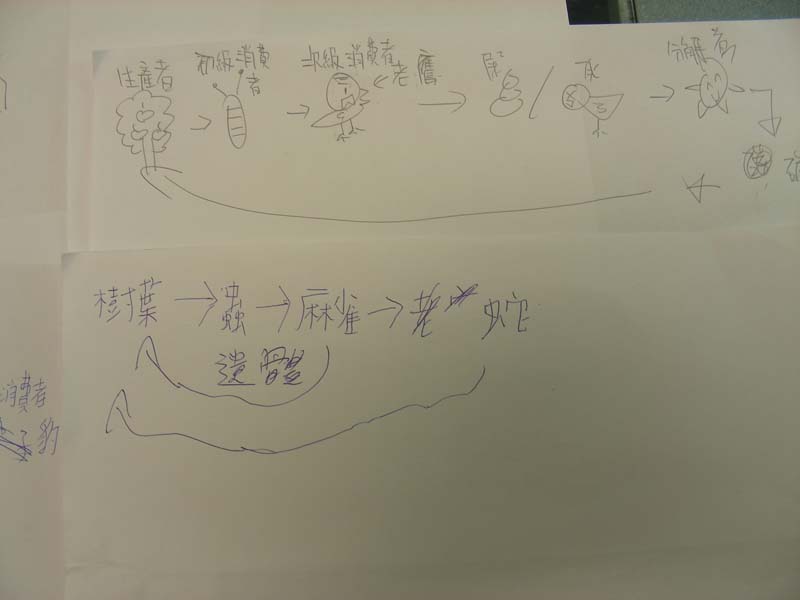 生產者 初級消費者 次級消費者 老鷹 屎 / 死 分解者
樹葉 → 蟲 → 麻雀 → 老 蛇
遺體
消費者
豹